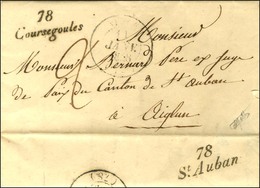 78
Coursegoules
Monsieur
Monsieur Bernard Père ex juge
de Paix du Canton de St Auban
à Aiglun
78
St Auban